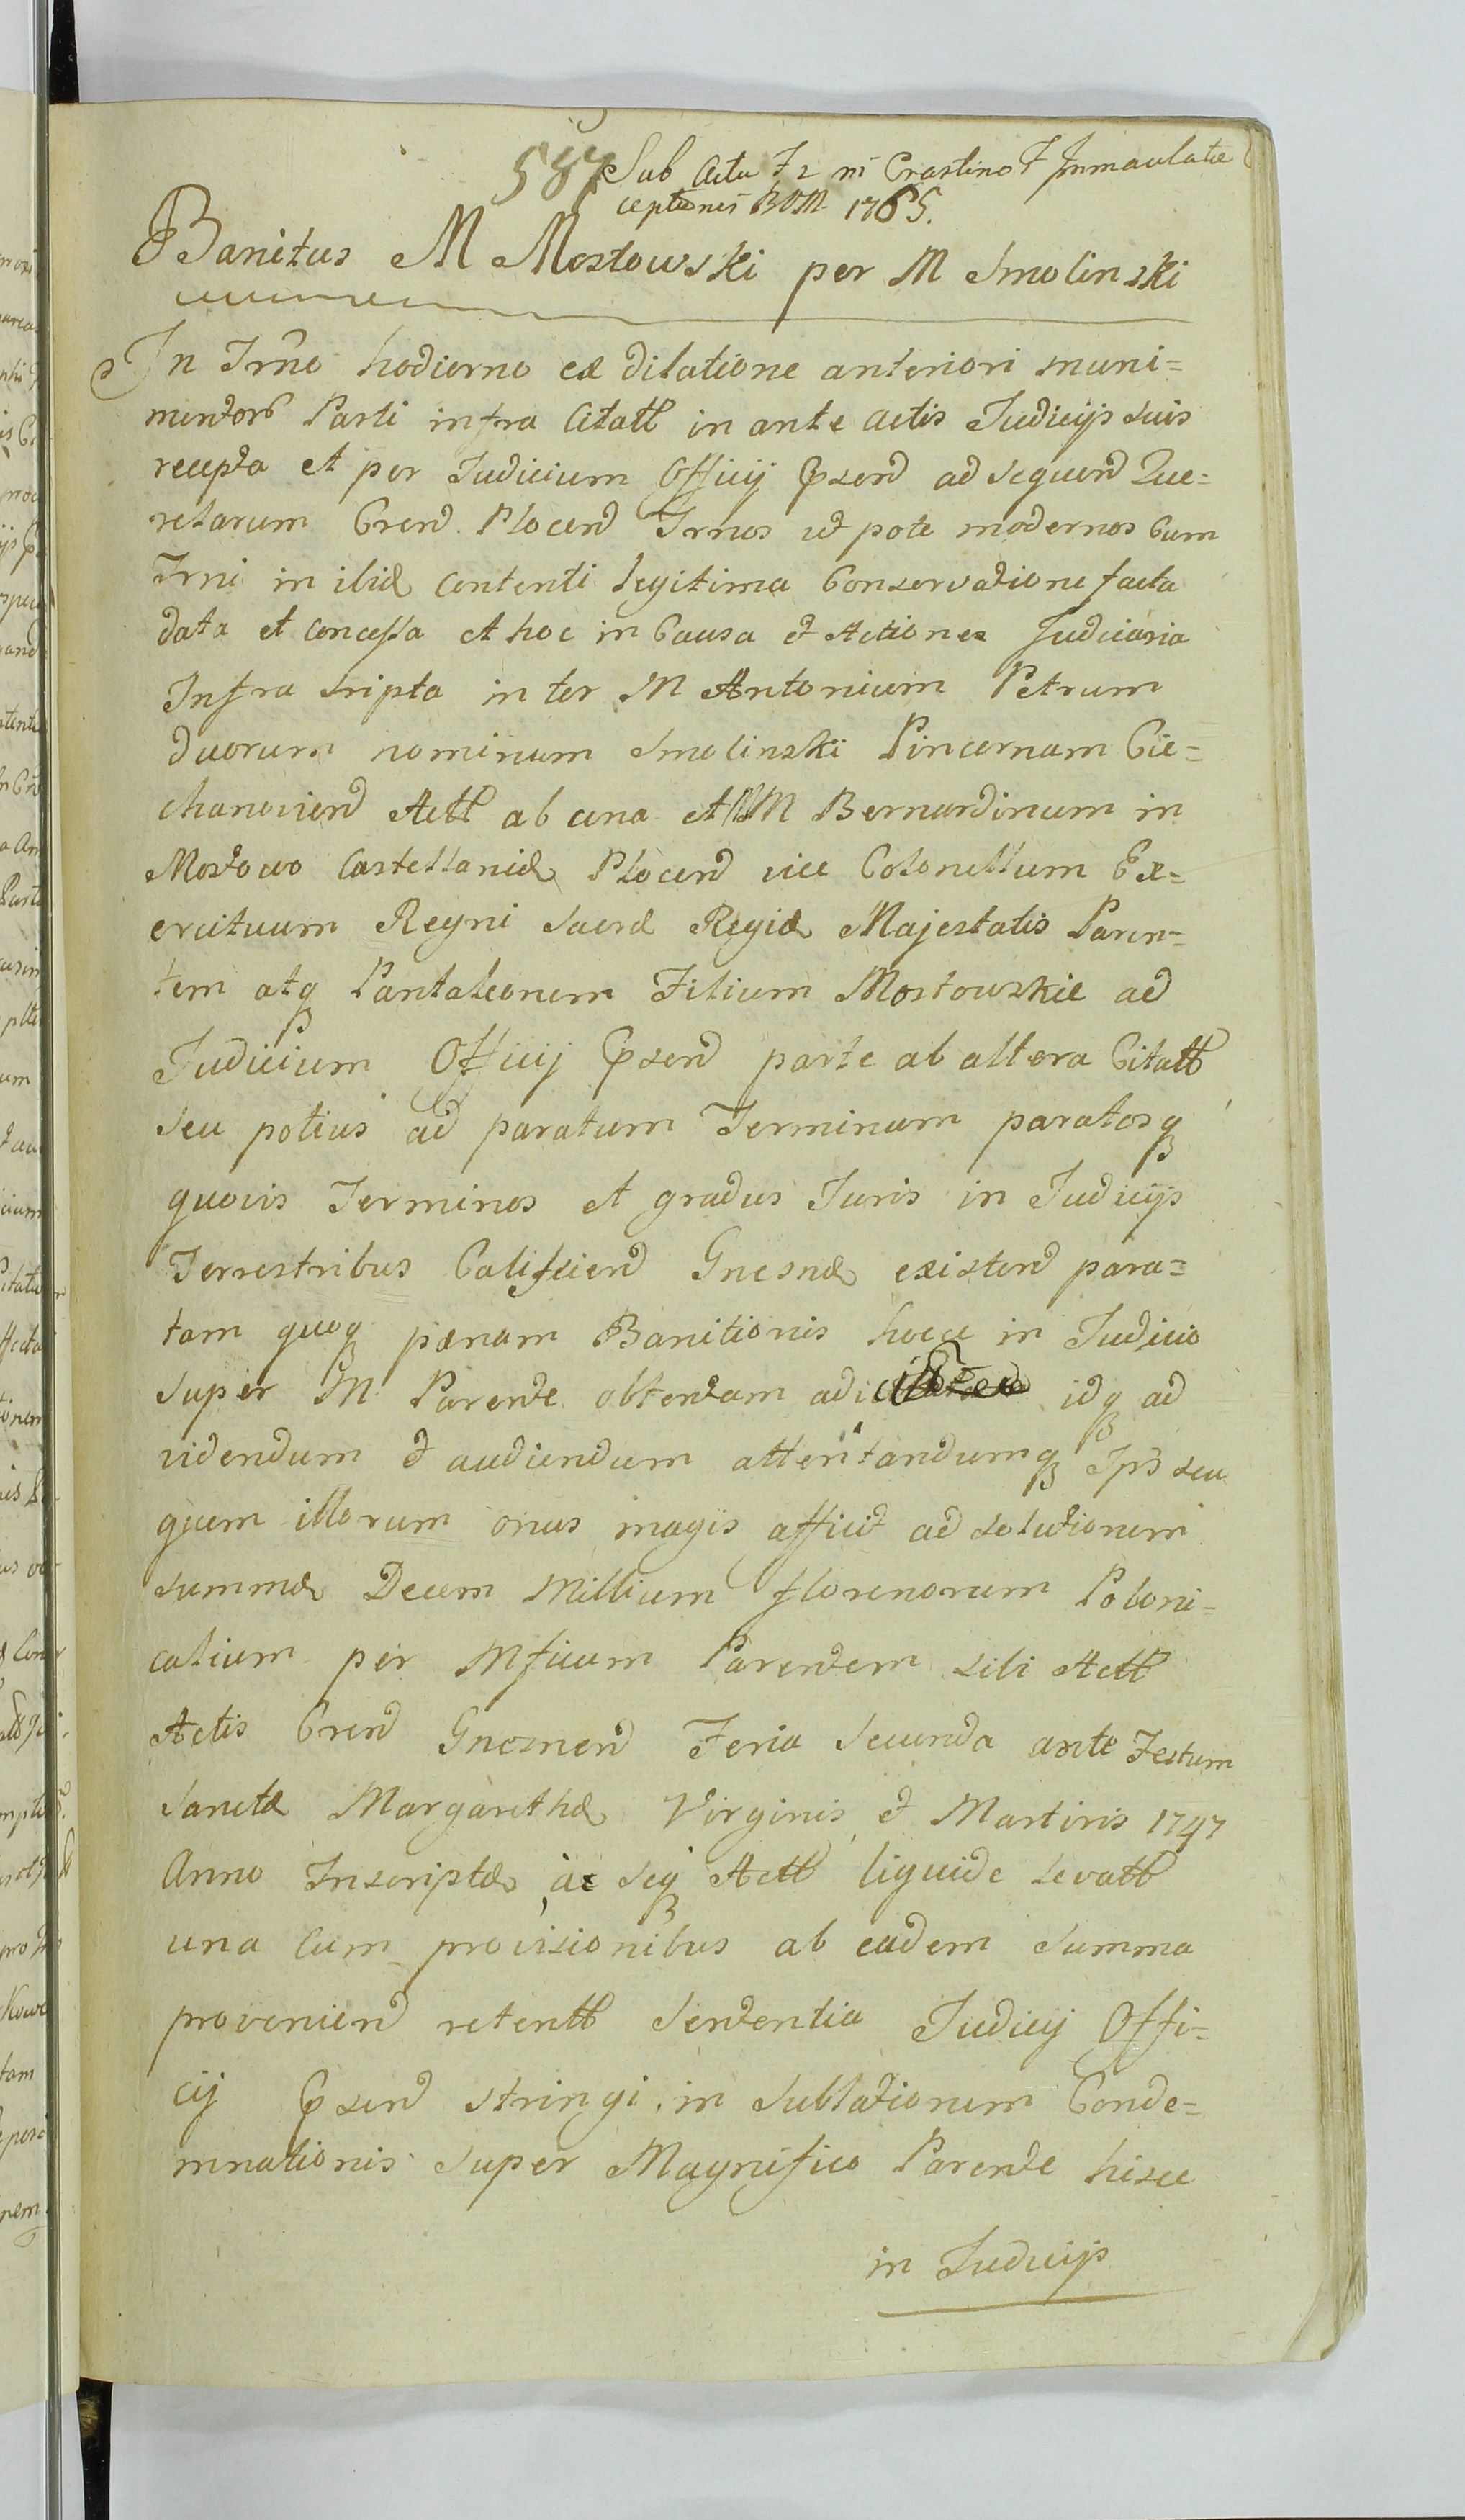 587 Sub Actu F 2 in Crastino F Immaculatæ
ceptionis BVM 1765.
Banitus M Mostowski per M Smolinski
In Trno hodierno ex dilatione anteriori muni=
mentorũ Parti infra Citatt in ante actis Judicijs suis
recepta et per Judicium Officij Ppsend ad sequend Que=
relarum Crend Plocend Trnos ut pote modernos cum
Trni in ibid contenti legitima Conservatione facta
data et concessa et hoc in Causa et Actione Judiciaria
Infra sripta inter M Antonium Petrum
duorum nominum Smolinski Pincernam Cie=
chanoviend Actt ab una et MM Bernardinum in
Mostowo Castellanidæ Plocend vice Colonellum Ex=
ercituum Regni Sacræ Regiæ Majestatis Paren=
tem atq Pantaleonem Filium Mostowskie ad
Judicium Officij Ppsend parte ab altera Citatt
seu potius ad paratum Terminum paratosq
quovis Terminos et gradus Juris in Judicijs
Terrestribus Califciend Gnesnæ existend para=
tam quoq pænam Banitionis hocce in Judicio
super M Parente obtentam adici idq ad
videndum et audiendum attentandumq Ips seu
quem illorum onus magis afficit ad solutionem
summæ Decem Millium florenorum Poloni=
calium per Mficum Parentem sibi Actt
Actis Crend Gnesnend Feria Secunda ante Festum
Sanctæ Margarethæ Virginis et Martiris 1747
Anno Inscriptæ ac seq Actt liquide levatt
una cum provisionibus ab eadem summa
proveniend retentt Sententia Judicij Offi=
cij Ppsend stringi in sublationem Conde=
mnationis super Magnifico Parente hisce
in Judicijs